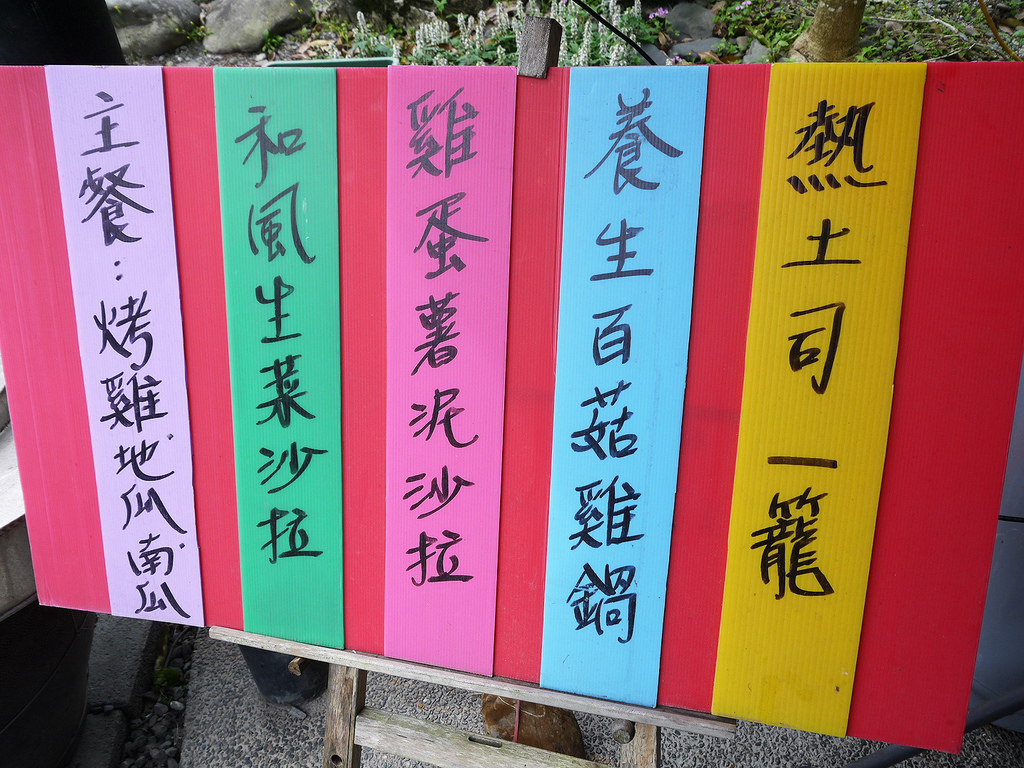 熱土司 一籠
養生百菇雞鍋
雞蛋薯泥沙拉
和風生菜沙拉
主餐:烤雞地瓜南瓜